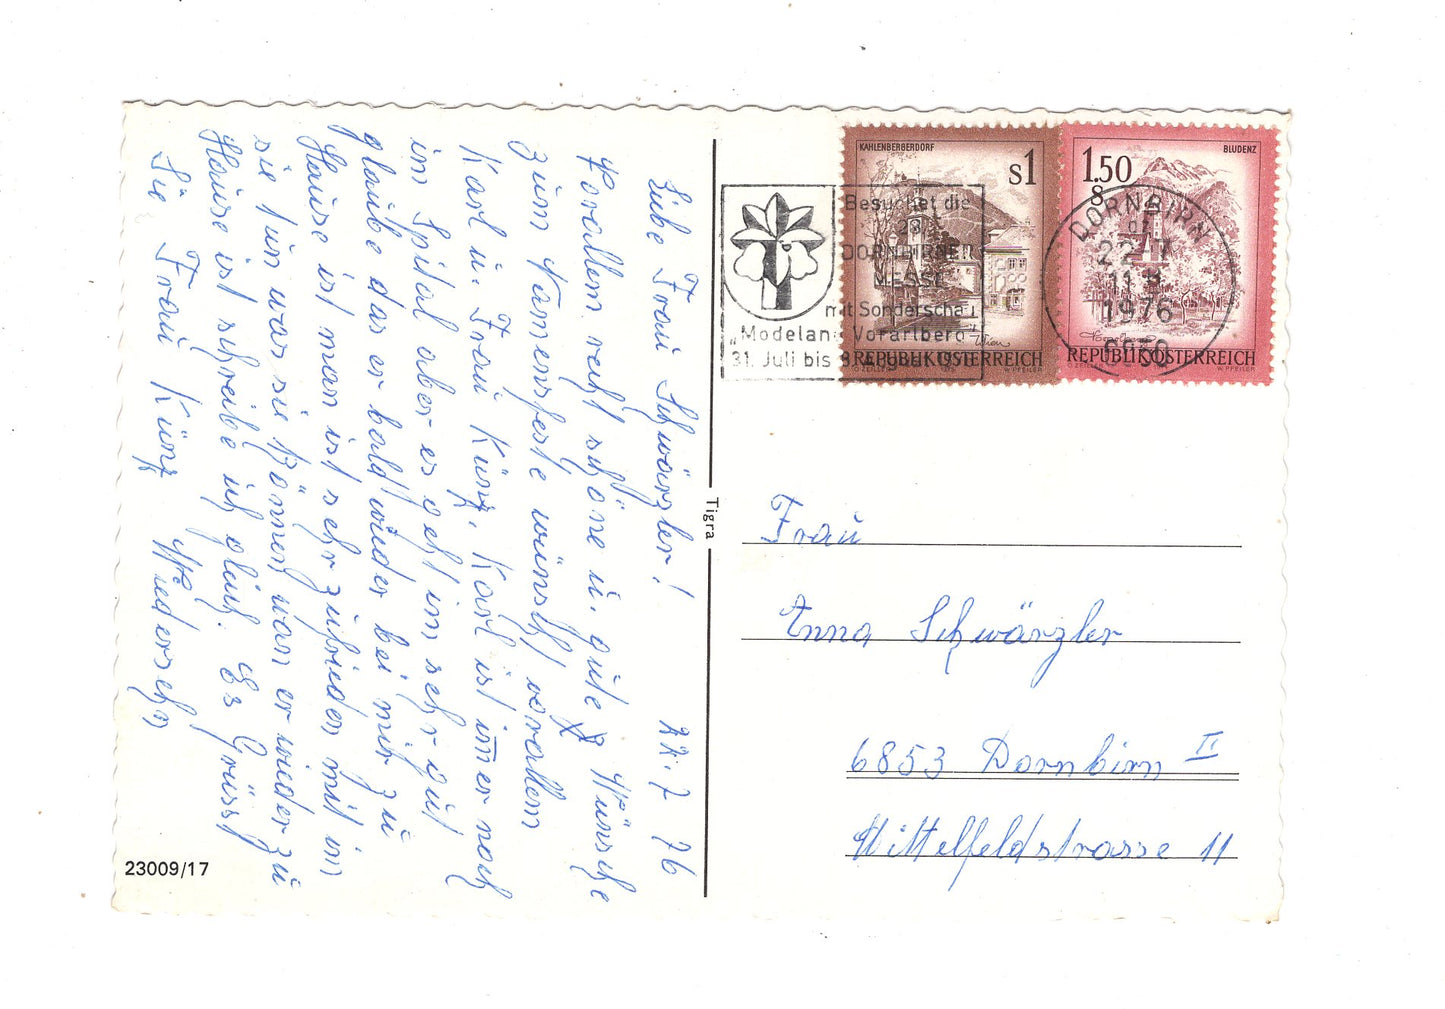 Liebe Frau Schwärzler! 22.7 76
Vorallem recht schöne u. gute Wünsche
zum Namensfeste wünscht vorallem
Karl u. Frau Künz, Karl ist imer noch
im Spital aber es geht im sehr gut
glaube das er bald wieder bei mir zu
Hause ist man ist sehr zufrieden mit im
sie tun was sie können wan er wieder zu
Hause ist schreibe ich gleich. Es Grüsst
Sie Frau Künz Wiedersehn
23009/17
Tigra
KAHLENBERGERDORF
S1
Wien
REPUBLIK ÖSTERREICH
O.ZEILLER
W.PFEILER
BLUDENZ
1.50
S
REPUBLIK ÖSTERREICH
W.PFEILER
Besuchet die
28.
DORNBIRNER
MESSE
mit Sonderschau
„Modeland Vorarlberg"
31. Juli bis 8. August 1976
DORNBIRN
22-7
11
1976
6850
Frau
Anna Schwärzler
6853 Dornbirn II
Mittelfeldstrasse 11